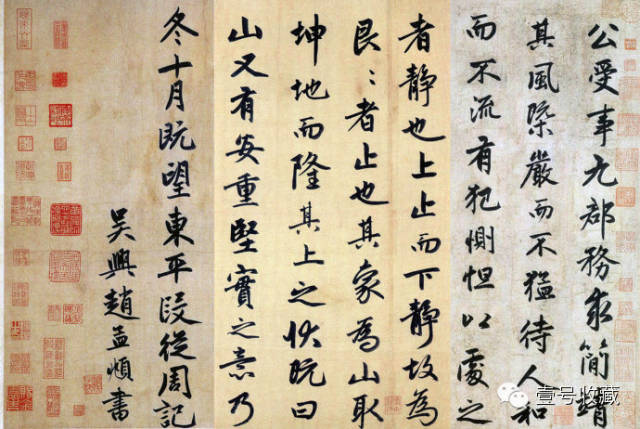 公受事九郡務求簡靖
其風槩嚴而不猛待人和
而不流有犯惻怛以處之
者靜也上止而下靜故為
艮〻者止也其象為山取
坤地而隆其上之狀既曰
山又有安重堅實之意乃
冬十月既望東平段從周記
吳興趙孟頫書
壹号收藏